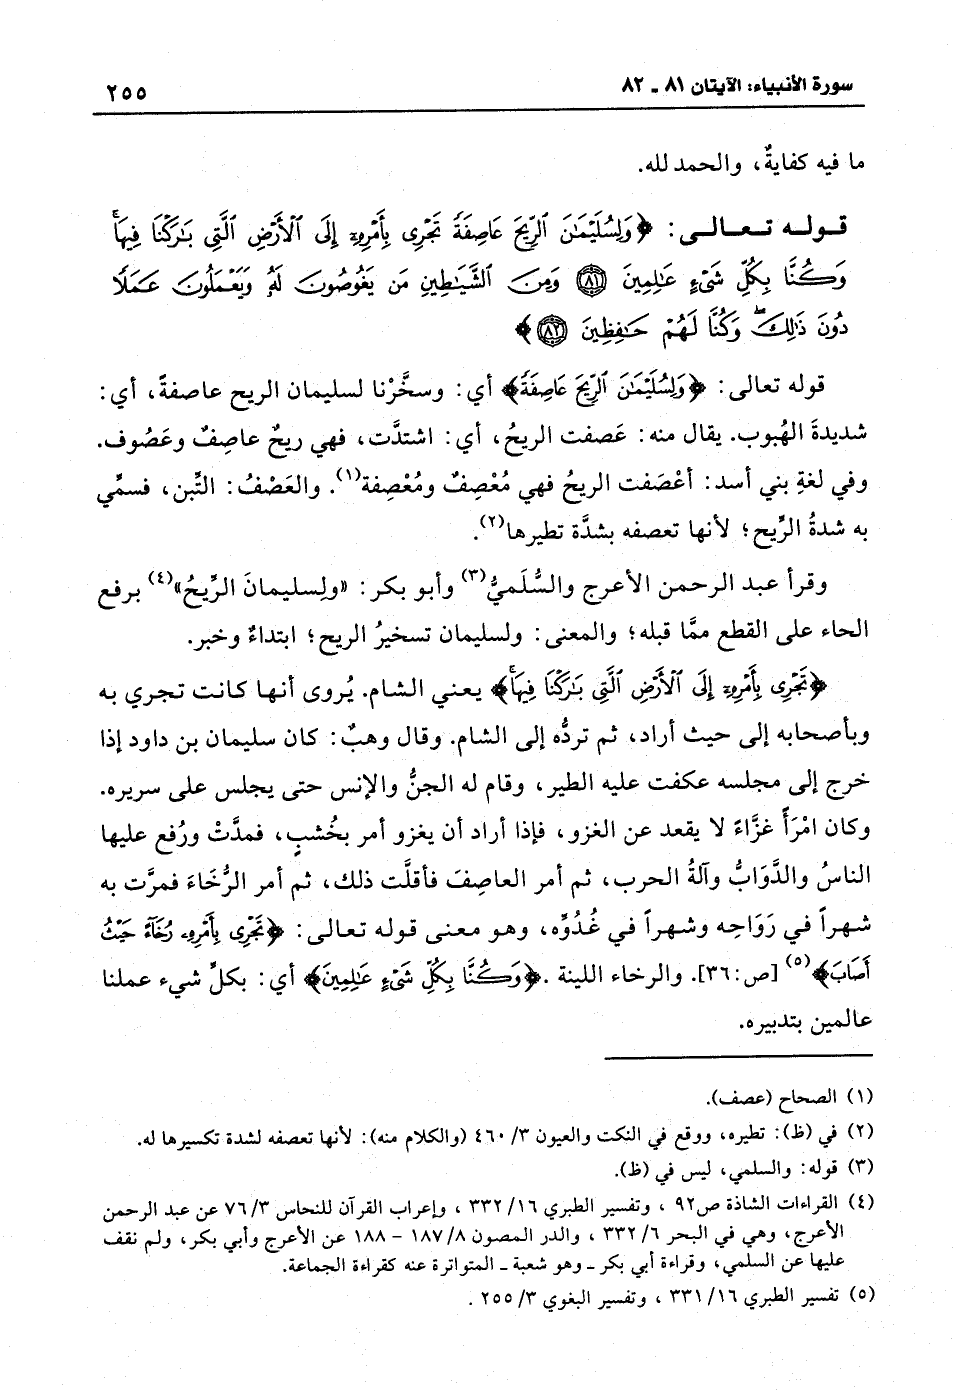 سورة الأنبياء: الآيتان ٨١ - ٨٢
٢٥٥
ما فيه كفايةٌ، والحمد لله.
قوله تعالى: ﴿وَلِسُلَيْمَٰنَ ٱلرِّيحَ عَاصِفَةً تَجْرِى بِأَمْرِهِۦٓ إِلَى ٱلْأَرْضِ ٱلَّتِى بَٰرَكْنَا فِيهَا ۚ
وَكُنَّا بِكُلِّ شَىْءٍ عَٰلِمِينَ ٨١ وَمِنَ ٱلشَّيَٰطِينِ مَن يَغُوصُونَ لَهُۥ وَيَعْمَلُونَ عَمَلًا
دُونَ ذَٰلِكَ ۖ وَكُنَّا لَهُمْ حَٰفِظِينَ ٨٢﴾
قوله تعالى: ﴿وَلِسُلَيْمَٰنَ ٱلرِّيحَ عَاصِفَةً﴾ أي: وسخَّرْنا لسليمان الريح عاصفةً، أي:
شديدةَ الهُبوب. يقال منه: عَصفت الريحُ، أي: اشتدَّت، فهي ريحٌ عاصِفٌ وعَصُوف.
وفي لغةِ بني أسد: أعْصَفت الريحُ فهي مُعْصِفٌ ومُعْصِفة(١). والعَصْفُ: التِّبن، فسمِّي
به شدةُ الرِّيح؛ لأنها تعصفه بشدَّة تطيرها(٢).
وقرأ عبد الرحمن الأعرج والسُّلَميُّ(٣) وأبو بكر: «ولِسليمانَ الرِّيحُ»(٤) برفع
الحاء على القطع ممَّا قبله؛ والمعنى: ولسليمان تسخيرُ الريح؛ ابتداءٌ وخبر.
﴿تَجْرِى بِأَمْرِهِۦٓ إِلَى ٱلْأَرْضِ ٱلَّتِى بَٰرَكْنَا فِيهَا ۚ﴾ يعني الشام. يُروى أنها كانت تجري به
وبأصحابه إلى حيث أراد، ثم تردُّه إلى الشام. وقال وهبٌ: كان سليمان بن داود إذا
خرج إلى مجلسه عكفت عليه الطير، وقام له الجنُّ والإنس حتى يجلس على سريره.
وكان امْرَأً غزَّاءً لا يقعد عن الغزو، فإذا أراد أن يغزو أمر بخُشبٍ، فمدَّتْ ورُفع عليها
الناسُ والدَّوَابُّ وآلةُ الحرب، ثم أمر العاصِفَ فأقلَّت ذلك، ثم أمر الرُّخَاءَ فمرَّت به
شهراً في رَوَاحِه وشهراً في غُدُوِّه، وهو معنى قوله تعالى: ﴿تَجْرِى بِأَمْرِهِۦ رُخَآءً حَيْثُ
أَصَابَ﴾(٥) [ص:٣٦]. والرخاء اللينة .﴿وَكُنَّا بِكُلِّ شَىْءٍ عَٰلِمِينَ﴾ أي: بكلِّ شيء عملنا
عالمين بتدبيره.
(١) الصحاح (عصف).
(٢) في (ظ): تطيره، ووقع في النكت والعيون ٣/ ٤٦٠ (والكلام منه): لأنها تعصفه لشدة تكسيرها له.
(٣) قوله: والسلمي، ليس في (ظ).
(٤) القراءات الشاذة ص٩٢ ، وتفسير الطبري ١٦/ ٣٣٢ ، وإعراب القرآن للنحاس ٣/ ٧٦ عن عبد الرحمن
الأعرج، وهي في البحر ٦/ ٣٣٢ ، والدر المصون ٨/ ١٨٧ - ١٨٨ عن الأعرج وأبي بكر، ولم نقف
عليها عن السلمي، وقراءة أبي بكر - وهو شعبة - المتواترة عنه كقراءة الجماعة.
(٥) تفسير الطبري ١٦/ ٣٣١ ، وتفسير البغوي ٣/ ٢٥٥ .